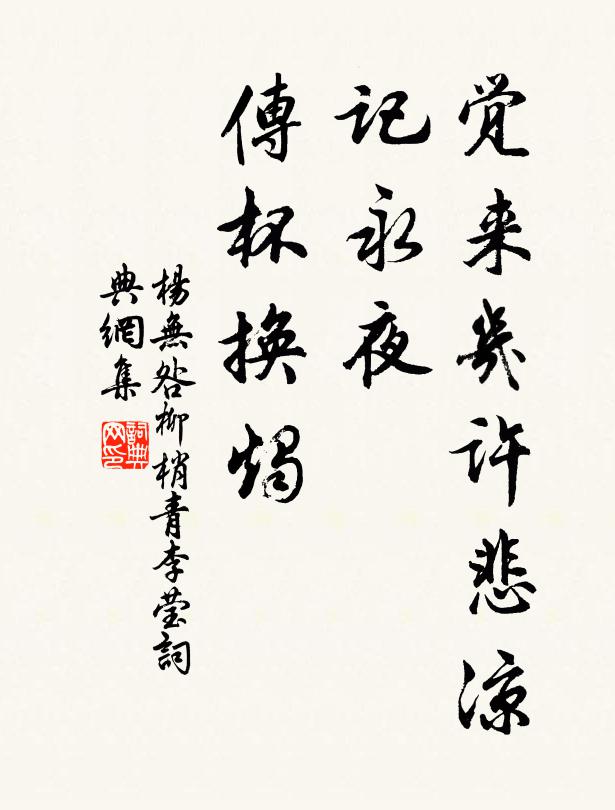 覚来幾許悲涼
記永夜
傳杯換燭
楊無咎柳梢青李莹詞
典網集
詞典
网印